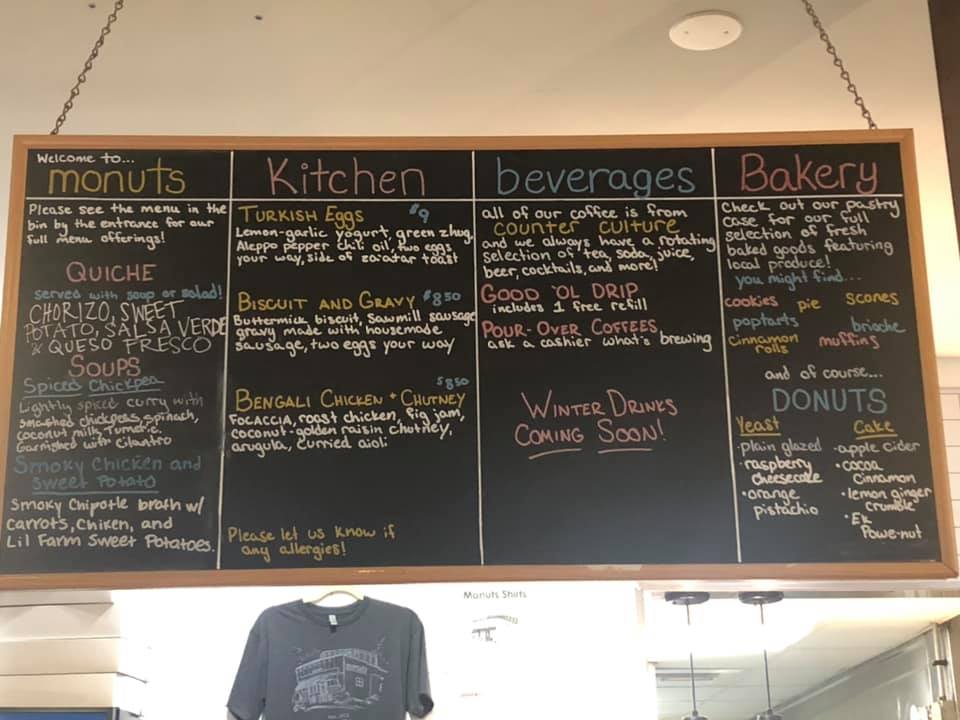 Welcome to...
monuts
Please see the menu in the
bin by the entrance for our
full menu offerings!
QUICHE
served with soup or salad!
CHORIZO, SWEET
POTATO, SALSA VERDE
& QUESO FRESCO
SOUPS
Spiced Chickpea
Lightly spiced curry with
smashed chickpeas, spinach,
coconut milk, Tumeric.
Garnished with cilantro
Smoky Chicken and
Sweet Potato
Smoky Chipotle broth w/
Carrots, Chiken, and
Lil Farm Sweet Potatoes.
Kitchen
TURKISH EGGS $9
Lemon-garlic yogurt, green zhug,
Aleppo pepper chili oil, two eggs
your way, side of za'atar toast
BISCUIT AND GRAVY $8.50
Buttermilk biscuit, Sawmill sausage
gravy made with housemade
sausage, two eggs your way
$8.50
BENGALI CHICKEN + CHUTNEY
Focaccia, roast chicken, fig jam,
coconut-golden raisin chutney,
arugula, curried aioli
Please let us know if
any allergies!
beverages
all of our coffee is from
counter culture
and we always have a rotating
selection of tea, soda, juice,
beer, cocktails, and more!
GOOD 'OL DRIP
includes 1 free refill
POUR-OVER COFFEES
ask a cashier what's brewing
WINTER DRINKS
COMING SOON!
Bakery
Check out our pastry
case for our full
selection of fresh
baked goods featuring
local produce!
you might find...
cookies pie scones
poptarts brioche
cinnamon
rolls muffins
and of course...
DONUTS
Yeast
·plain glazed
·raspberry
cheesecake
·orange
pistachio
Cake
·apple cider
·cocoa
cinnamon
·lemon ginger
crumble
·Ex
Powe-nut
Monuts Shirts